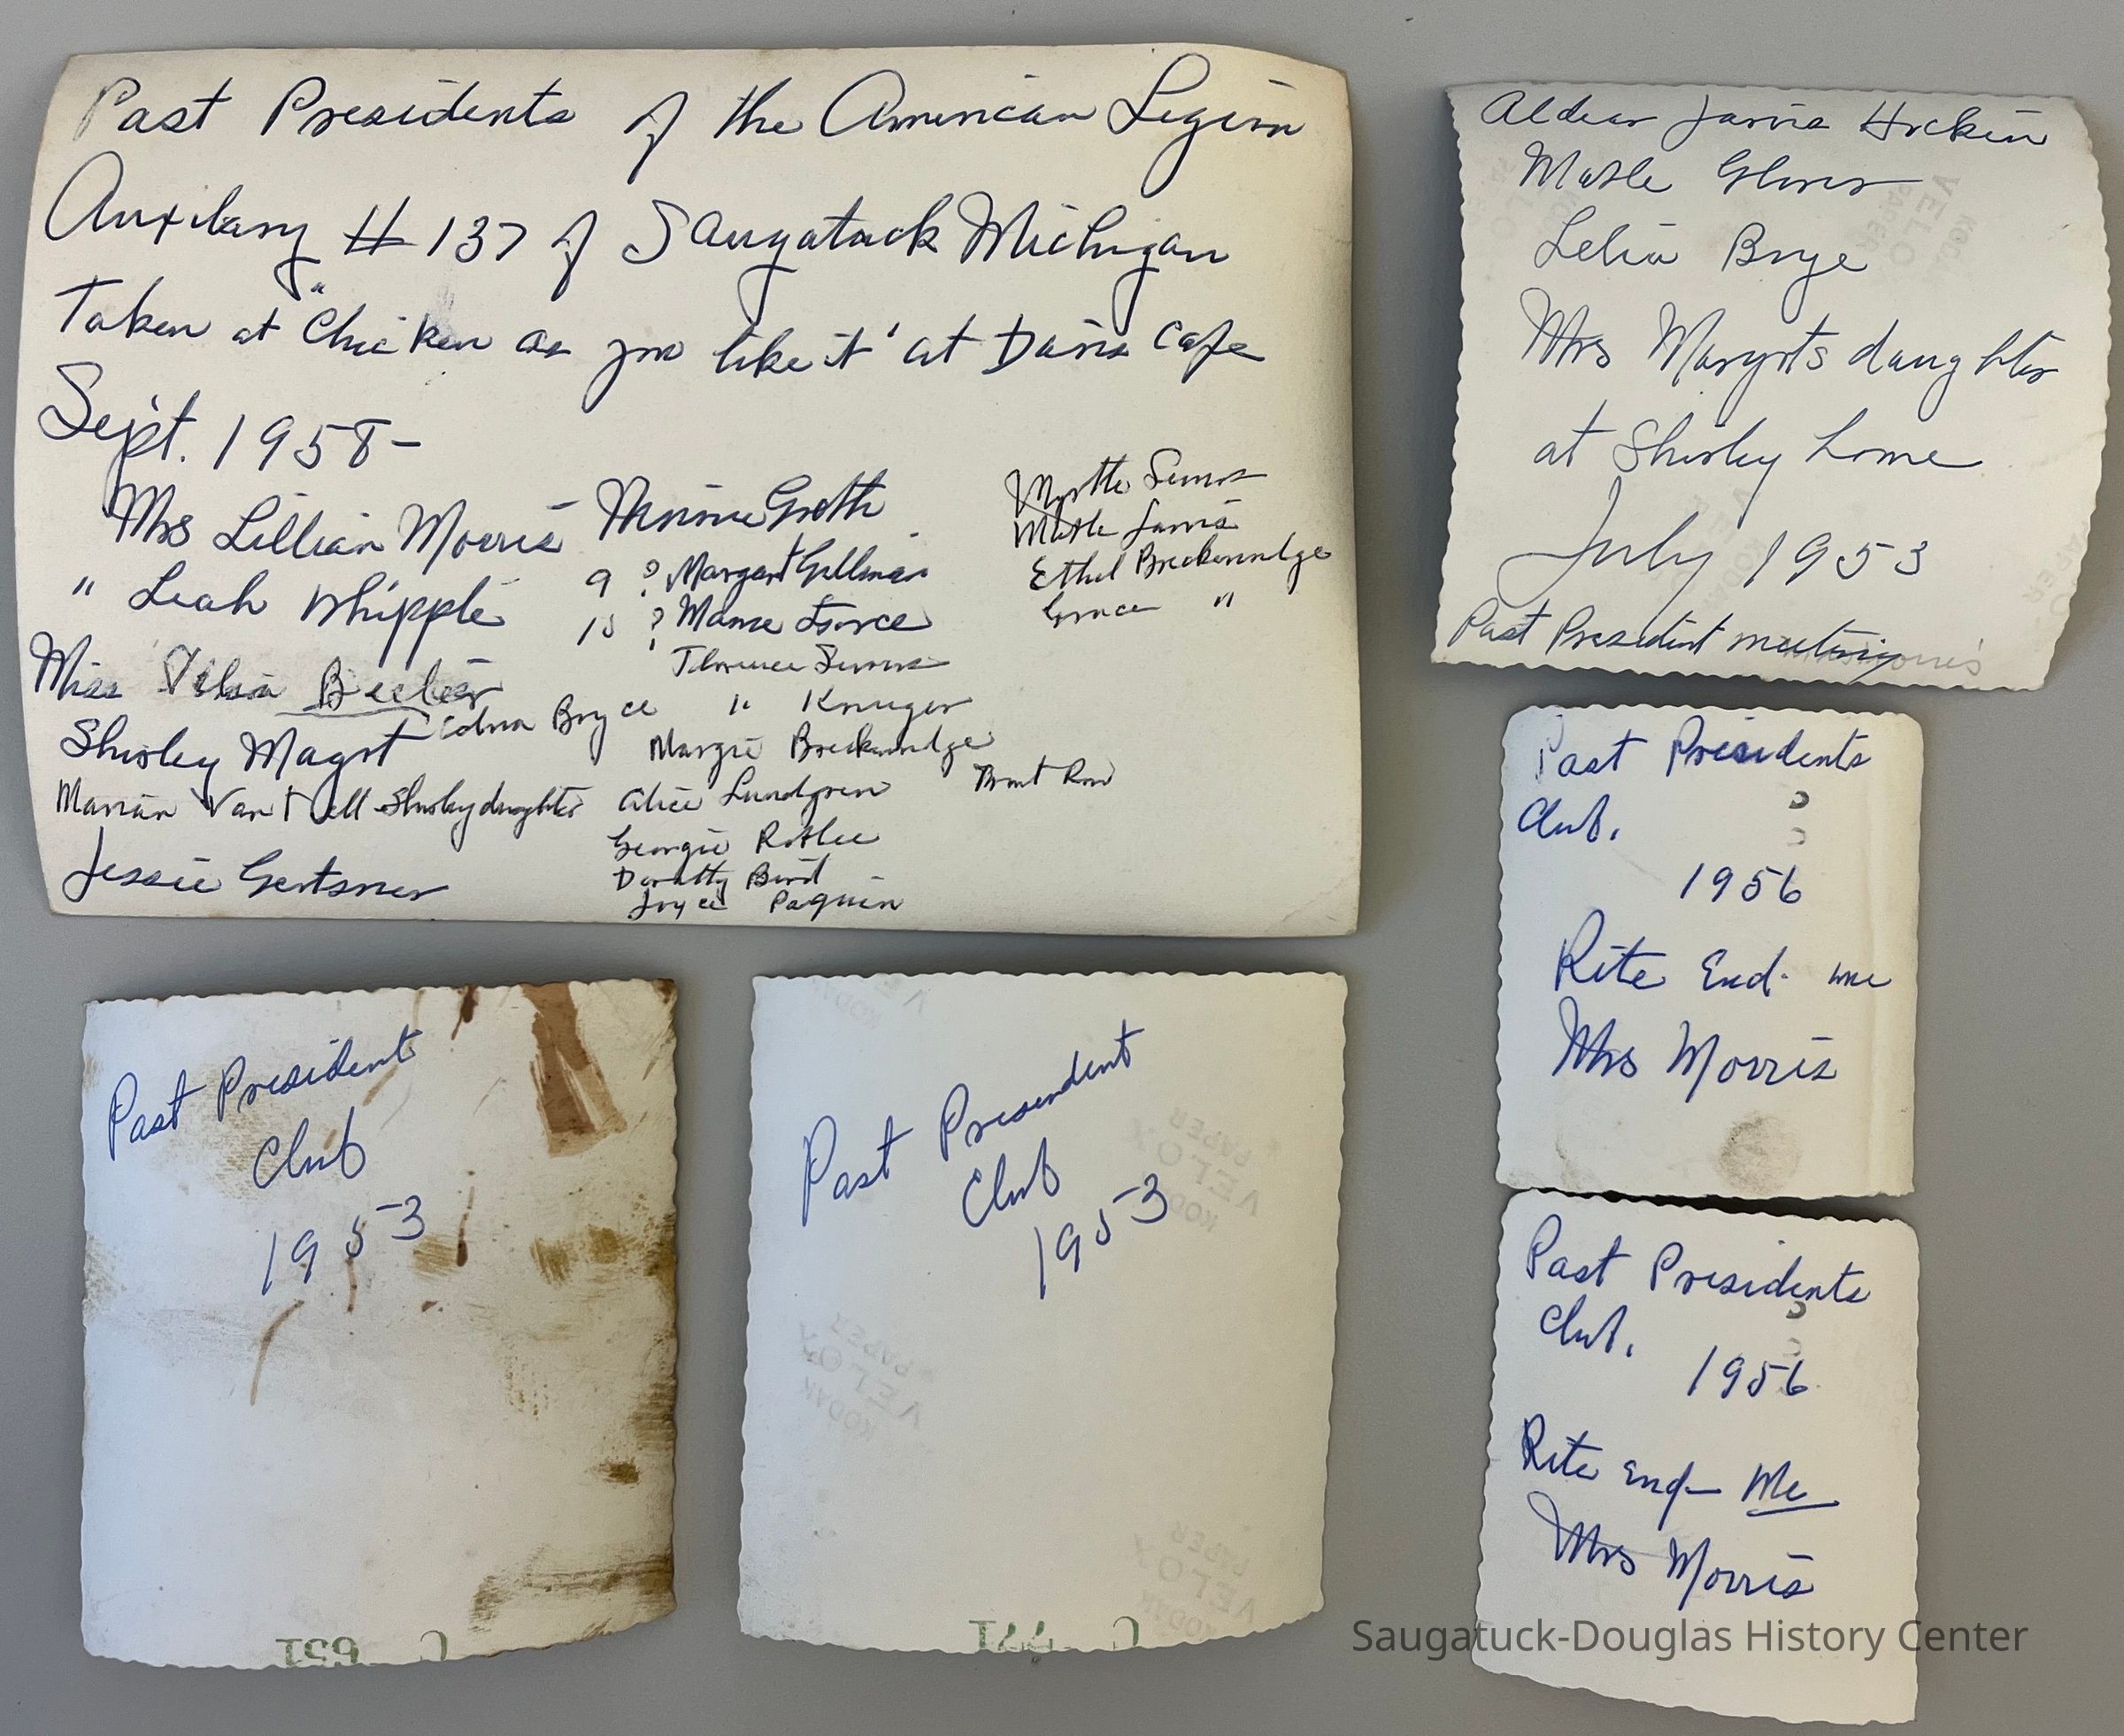 Past Presidents of the American Legion
Auxilary # 137 of Saugatuck Michigan
Taken at "Chicken as you like it" at Davis Cafe
Sept. 1958-
Mrs Lillian Morris
" Leah Whipple
Miss
Shirley Magot
Marian Van Shirley daughter
Jessie Gertsner
Edna Bryce
Minnie Groth
9 ? Margaret Gillman
10 ? Mame Force
Florence Simms
" Krueger
Margie Breckenridge
Alice Lundgren
Georgie
Dorothy Bird
Joyce Paquin
Front Row
Myrtle Simms
Myrtle Jarvis
Ethel Breckenridge
Grace "
Jarvis Hocken
Mable Glover
Lelia Brye
Mrs daughter
at Shirley home
July 1953
Past President meeting
Past Presidents
Club.
1956
Rite End- me
Mrs Morris
Past President
Club
1953
Past President
Club
1953
KODAK
VELOX
PAPER
Past Presidents
Club.
1956
Rite End- Me
Mrs Morris
Saugatuck-Douglas History Center